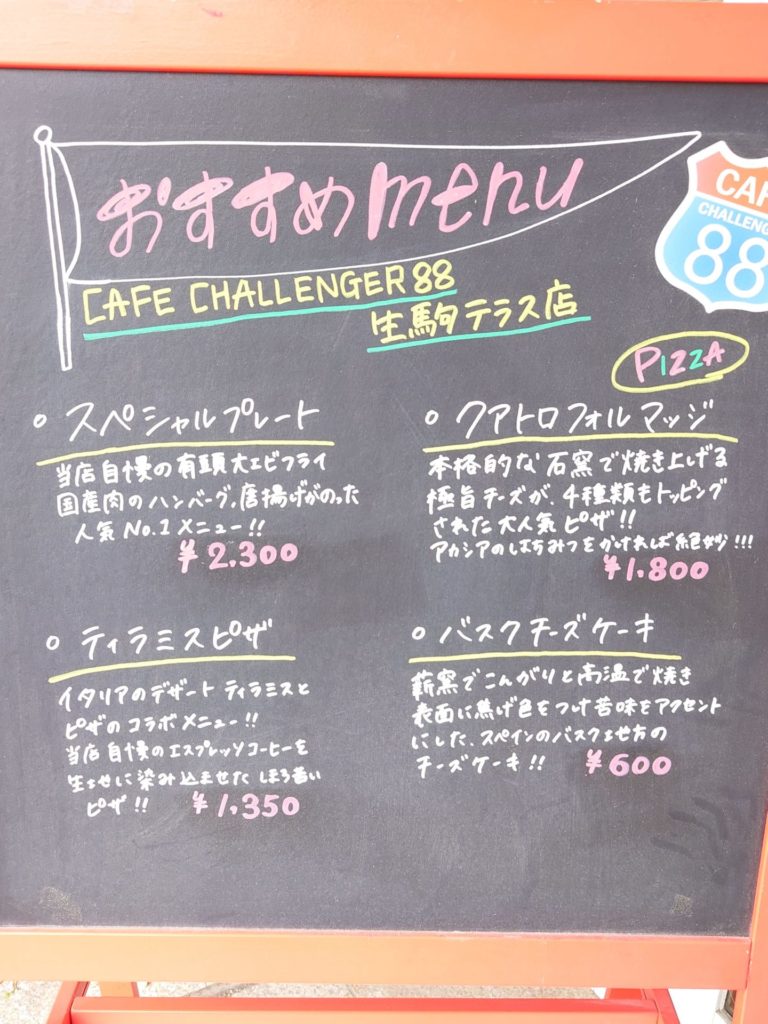 おすすめmenu
CAFE CHALLENGER 88
生駒テラス店
CAF
CHALLENG
88
PIZZA
○ スペシャルプレート
当店自慢の有頭大エビフライ
国産肉のハンバーグ、唐揚げがのった
人気No.1メニュー!!
¥2,300
○ クアトロフォルマッジ
本格的な石窯で焼き上げる
極旨チーズが、4種類もトッピング
された大人気ピザ!!
アカシアのはちみつをかければ絶妙!!!
¥1,800
○ ティラミスピザ
イタリアのデザート ティラミスと
ピザのコラボメニュー!!
当店自慢のエスプレッソコーヒーを
生地に染み込ませた ほろ苦い
ピザ!! ¥1,350
○ バスクチーズケーキ
薪窯でこんがりと高温で焼き
表面に焦げ色をつけ苦味をアクセント
にした、スペインのバスク地方の
チーズケーキ!! ¥600